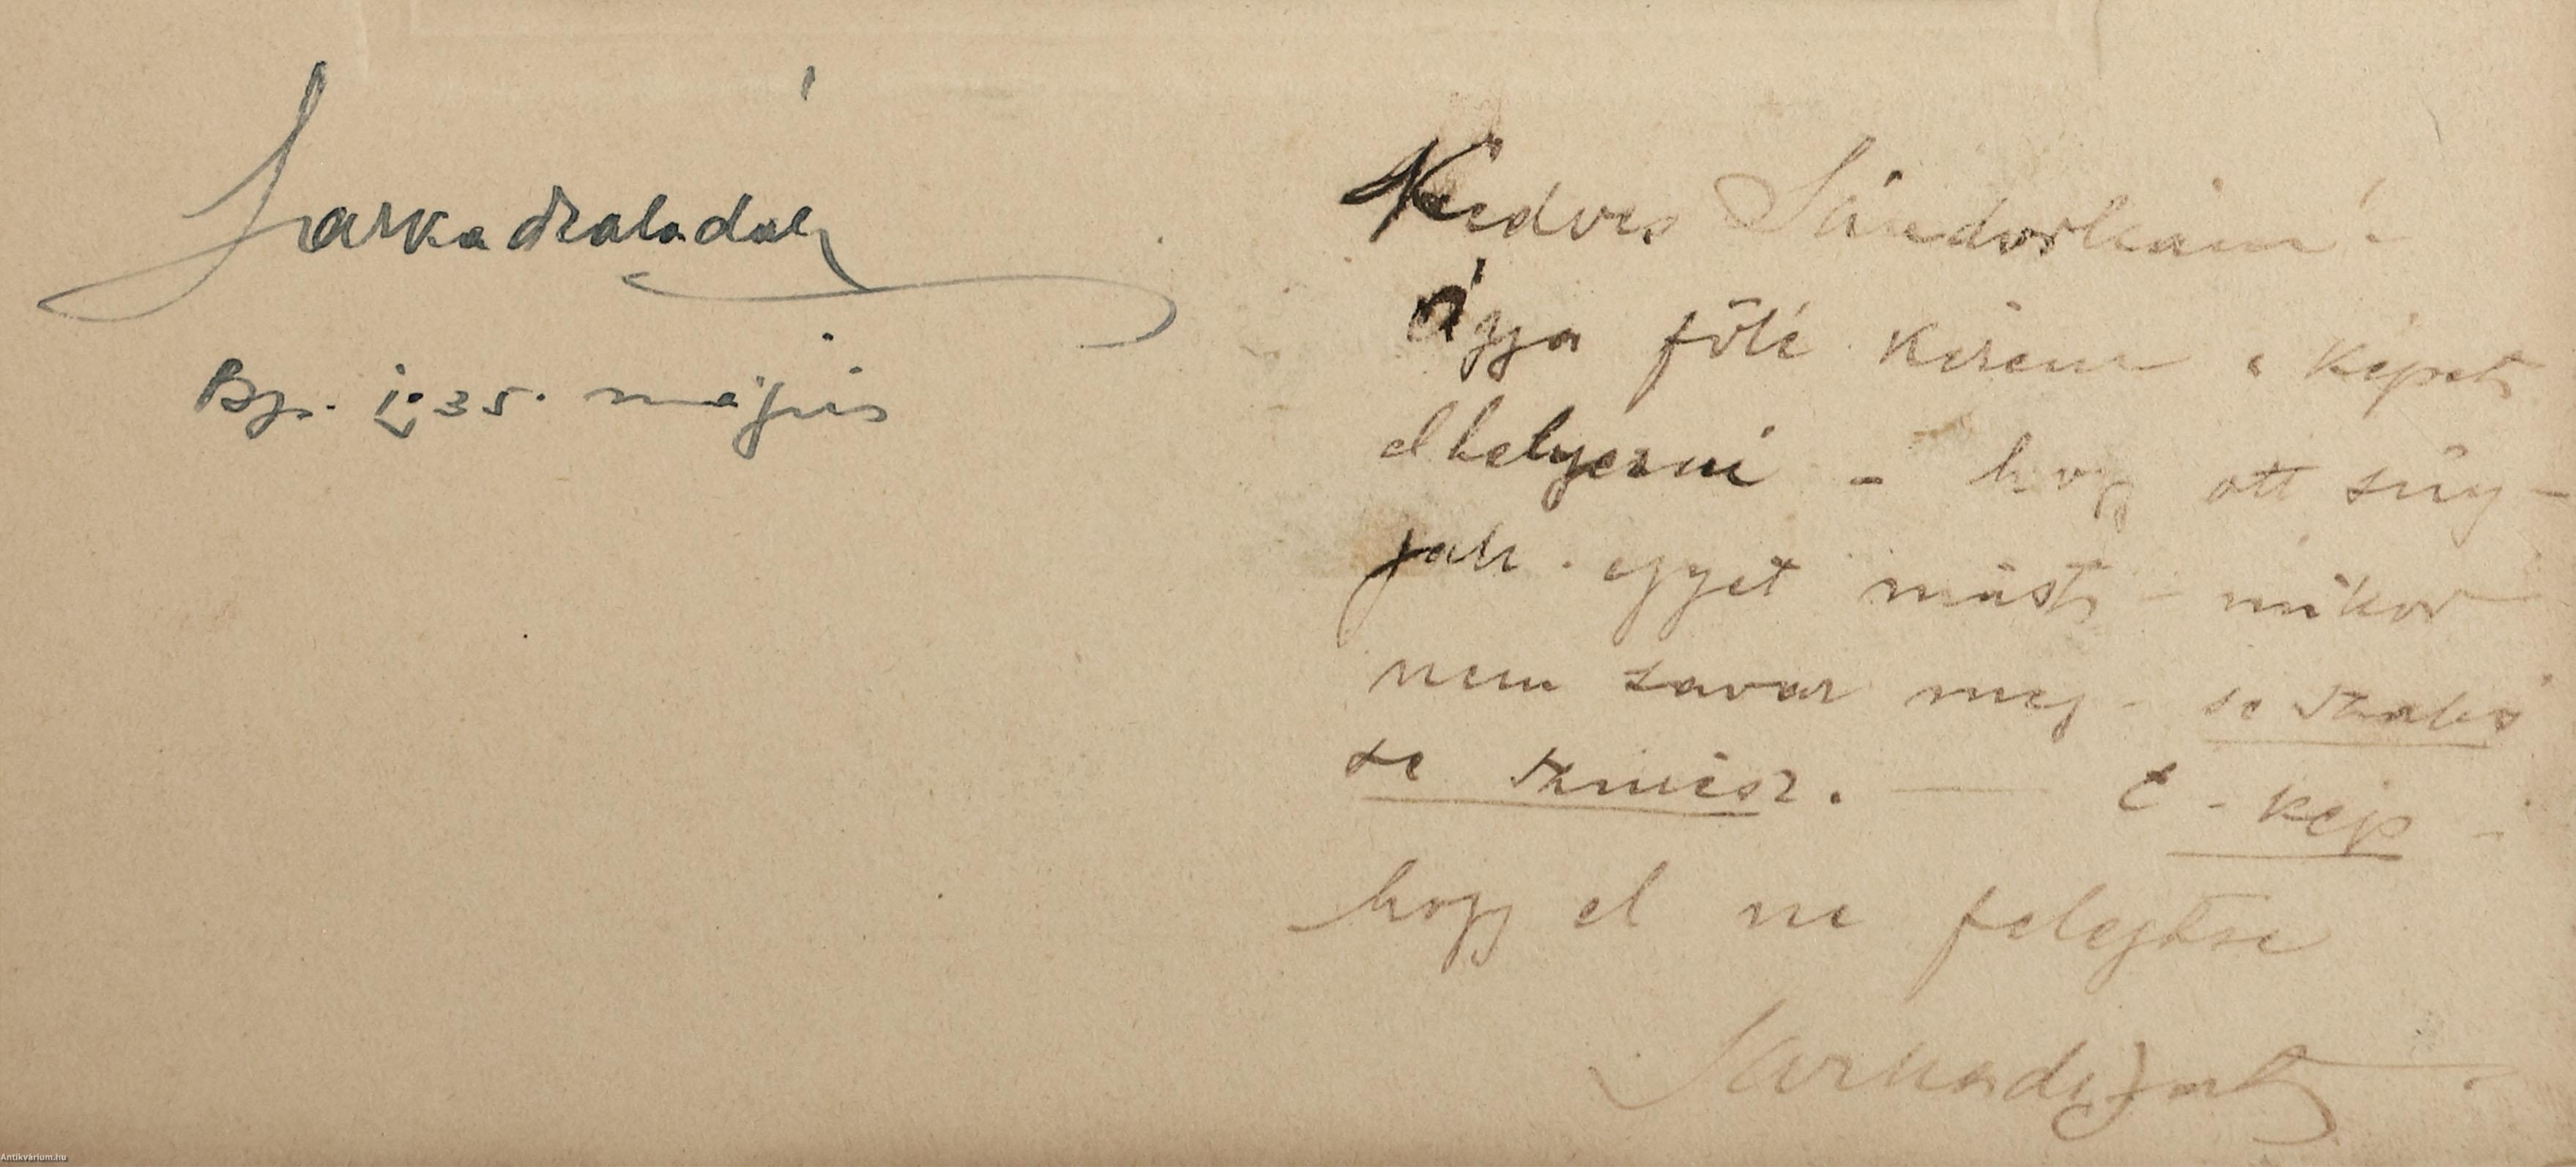 Sarkadi Aladár
Bp. 1935. május
Kedves Sándorkám!
Ágya fölé kérem e képet
elhelyezni - hogy ott súg-
jak egyet mást - mikor
nem zavar meg - se
se színész. — E - kép -
hogy el ne felejtse
Sarkadiját
Antikvárium.hu